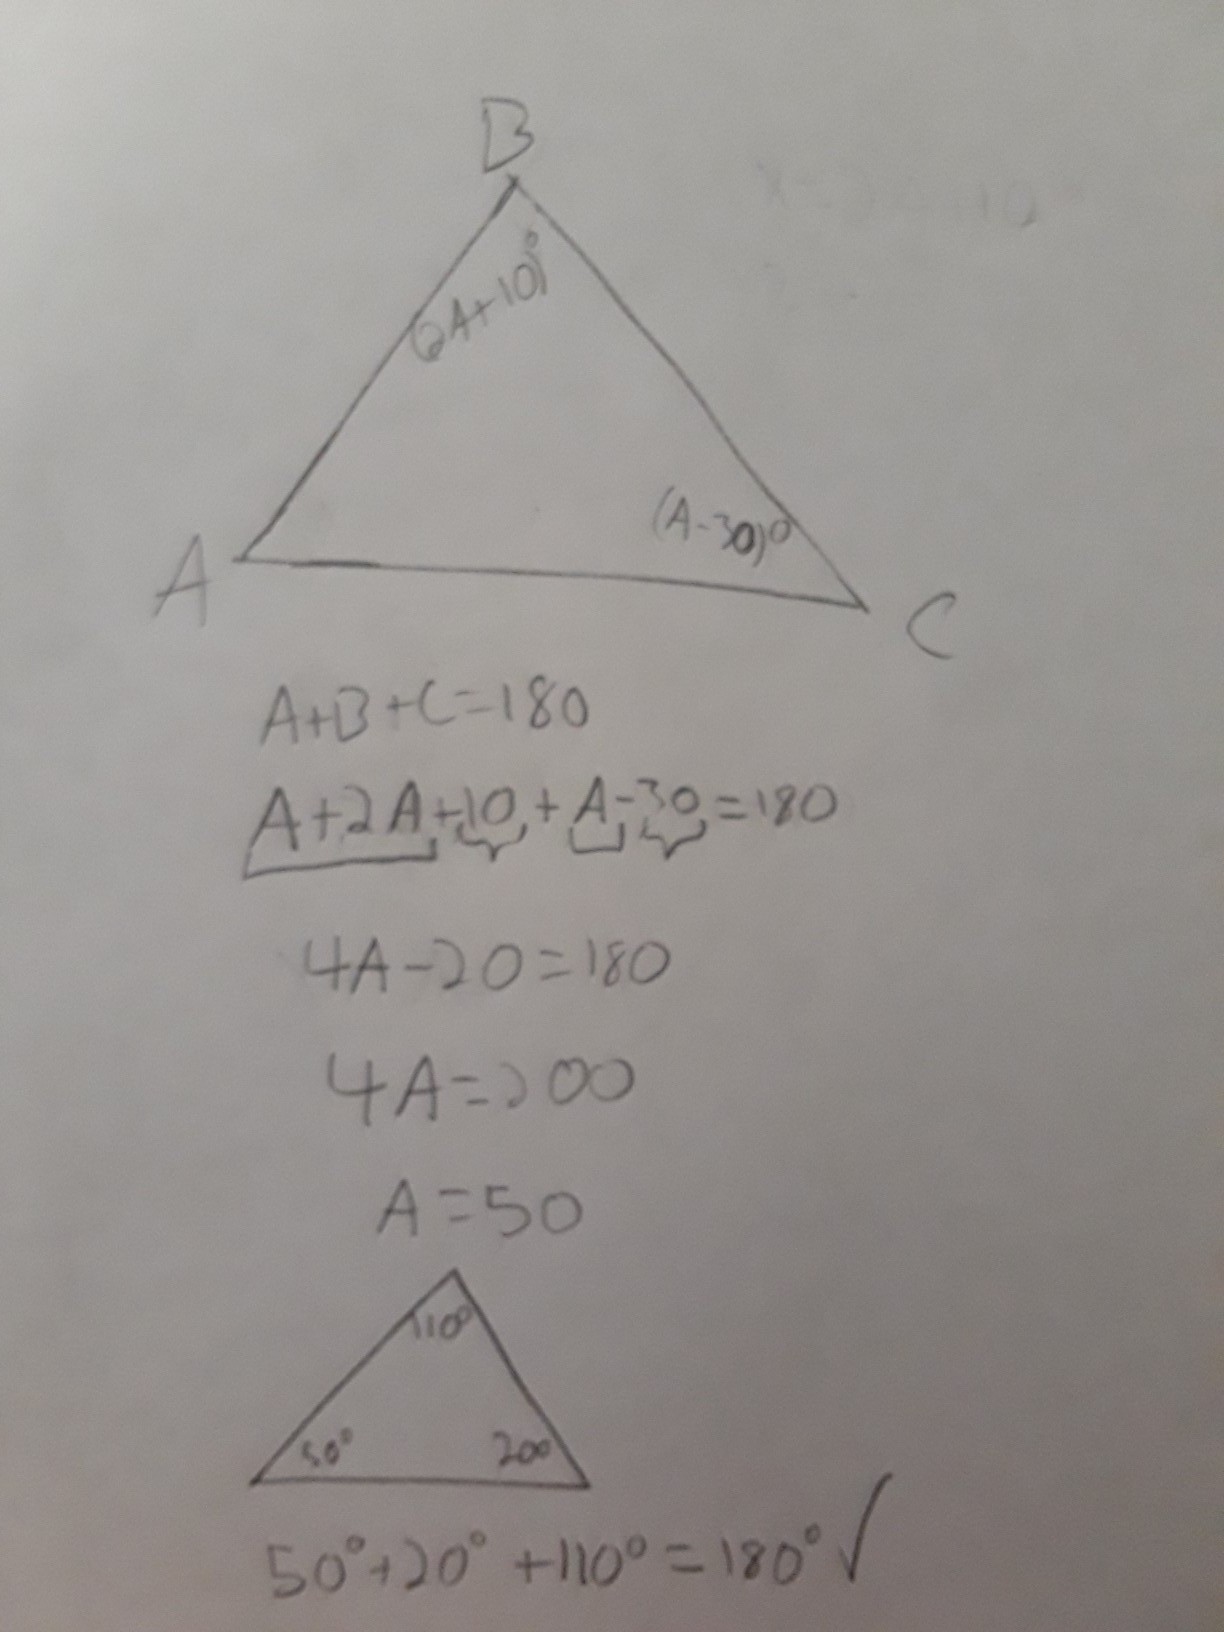 B
(2A+10)°
(A-30)°
A
C
A+B+C=180
A+2A+10+A-30=180
4A-20=180
4A=200
A=50
110°
50°
20°
50°+20°+110°=180°✓